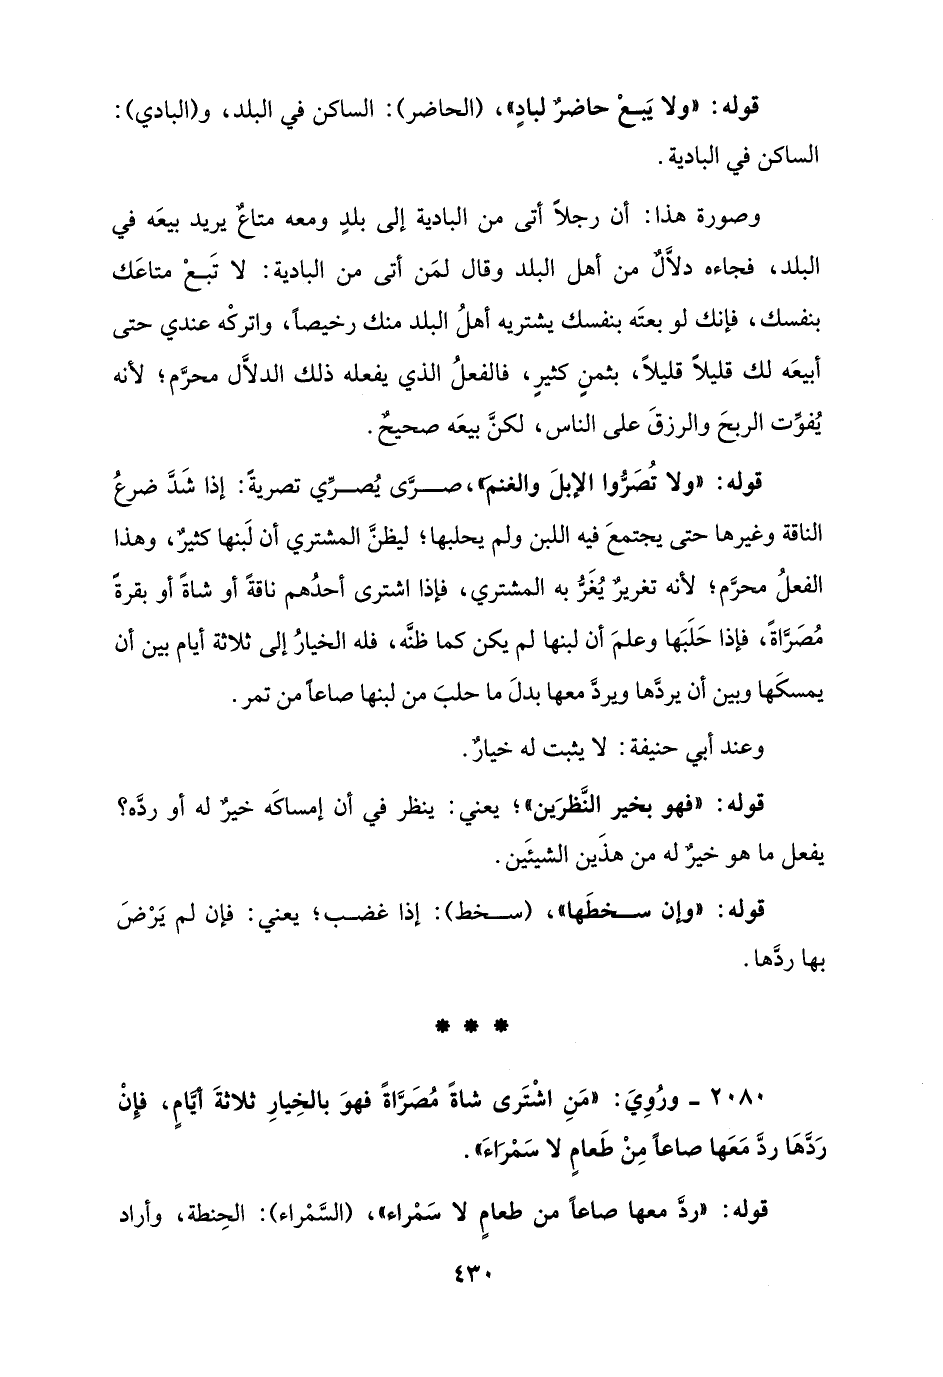 قوله: «ولا يَبـعْ حاضرٌ لبادٍ»، (الحاضر): الساكن في البلد، و(البادي):
الساكن في البادية.
وصورة هذا: أن رجلاً أتى من البادية إلى بلدٍ ومعه متاعٌ يريد بيعَه في
البلد، فجاءه دلاَّلٌ من أهل البلد وقال لمَن أتى من البادية: لا تَبـعْ متاعَك
بنفسك، فإنك لو بعتَه بنفسك يشتريه أهلُ البلد منك رخيصاً، واتركْه عندي حتى
أبيعَه لك قليلاً قليلاً، بثمنٍ كثيرٍ، فالفعلُ الذي يفعله ذلك الدلاَّل محرَّم؛ لأنه
يُفوِّت الربحَ والرزقَ على الناس، لكنَّ بيعَه صحيحٌ.
قوله: «ولا تُصَرُّوا الإبلَ والغنمَ»، صـرَّى يُصـرِّي تصريةً: إذا شَدَّ ضرعُ
الناقة وغيرها حتى يجتمعَ فيه اللبن ولم يحلبها؛ ليظنَّ المشتري أن لَبنها كثيرٌ، وهذا
الفعلُ محرَّم؛ لأنه تغريرٌ يُغَرُّ به المشتري، فإذا اشترى أحدُهم ناقةً أو شاةً أو بقرةً
مُصَرَّاةً، فإذا حَلَبَها وعلمَ أن لبنها لم يكن كما ظنَّه، فله الخيارُ إلى ثلاثة أيام بين أن
يمسكَها وبين أن يردَّها ويردَّ معها بدلَ ما حلبَ من لبنها صاعاً من تمر.
وعند أبي حنيفة: لا يثبت له خيارٌ.
قوله: «فهو بخير النَّظرَين»؛ يعني: ينظر في أن إمساكَه خيرٌ له أو ردَّه؟
يفعل ما هو خيرٌ له من هذَين الشيئَين.
قوله: «وإن سـخطَها»، (سـخط): إذا غضـب؛ يعني: فإن لم يَرْضَ
بها ردَّها.
* * *
٢٠٨٠ - ورُوِيَ: «مَنِ اشْتَرى شاةً مُصَرَّاةً فهوَ بالخِيارِ ثلاثةَ أيَّامٍ، فإنْ
رَدَّهَا ردَّ مَعَها صاعاً مِنْ طَعامٍ لا سَمْرَاءَ».
قوله: «ردَّ معها صاعاً من طعامٍ لا سَمْراء»، (السَّمْراء): الحِنطة، وأراد
٤٣٠